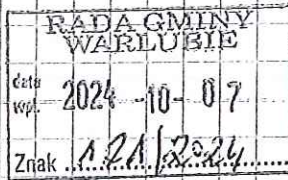 RADA GMINY
WARLUBIE
data
wpł. 2024 -10- 07
Znak 121/2024